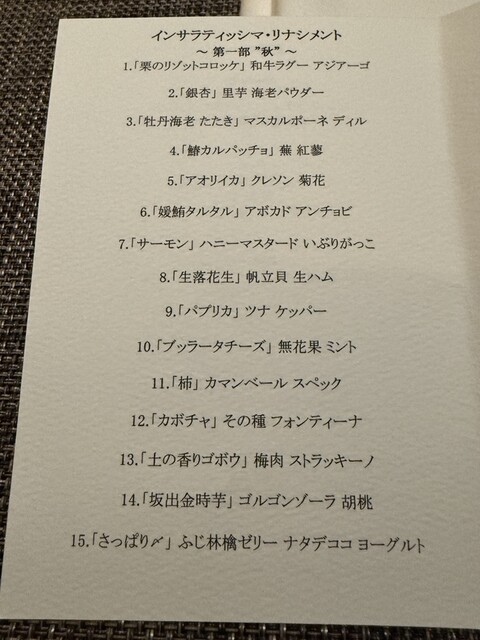 インサラティッシマ・リナシメント
～ 第一部 ”秋” ～
1.「栗のリゾットコロッケ」 和牛ラグー アジアーゴ
2.「銀杏」 里芋 海老パウダー
3.「牡丹海老 たたき」 マスカルポーネ ディル
4.「鰆カルパッチョ」 蕪 紅蓼
5.「アオリイカ」 クレソン 菊花
6.「媛鮪タルタル」 アボカド アンチョビ
7.「サーモン」 ハニーマスタード いぶりがっこ
8.「生落花生」 帆立貝 生ハム
9.「パプリカ」 ツナ ケッパー
10.「ブッラータチーズ」 無花果 ミント
11.「柿」 カマンベール スペック
12.「カボチャ」 その種 フォンティーナ
13.「土の香りゴボウ」 梅肉 ストラッキーノ
14.「坂出金時芋」 ゴルゴンゾーラ 胡桃
15.「さっぱり〆」 ふじ林檎ゼリー ナタデココ ヨーグルト